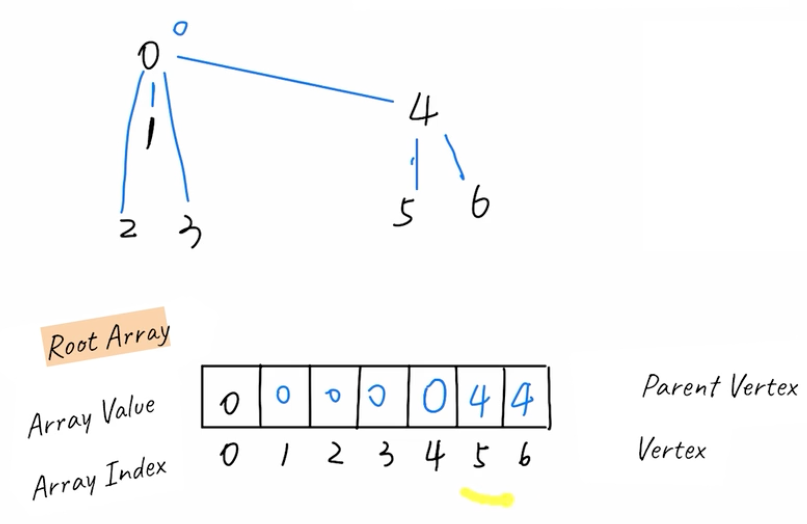 0
0
4
1
2 3
5 6
Root Array
Array Value 0 0 0 0 0 4 4 Parent Vertex
Array Index 0 1 2 3 4 5 6 Vertex